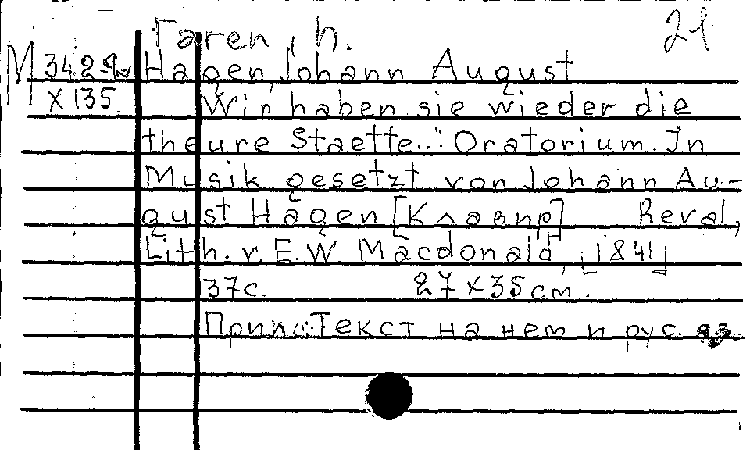 Гаген, h. 21
М 342-9 Hagen, Johann August
X 135 "Wir haben sie wieder die
theure Staette..." Oratorium. In
Musik gesetzt von Johann Au-
gust Hagen [Клавир] Reval,
Lith. v. E.W. Macdonald, [1841]
37с. 27 x 35 см.
Прим.: Текст на нем и рус яз